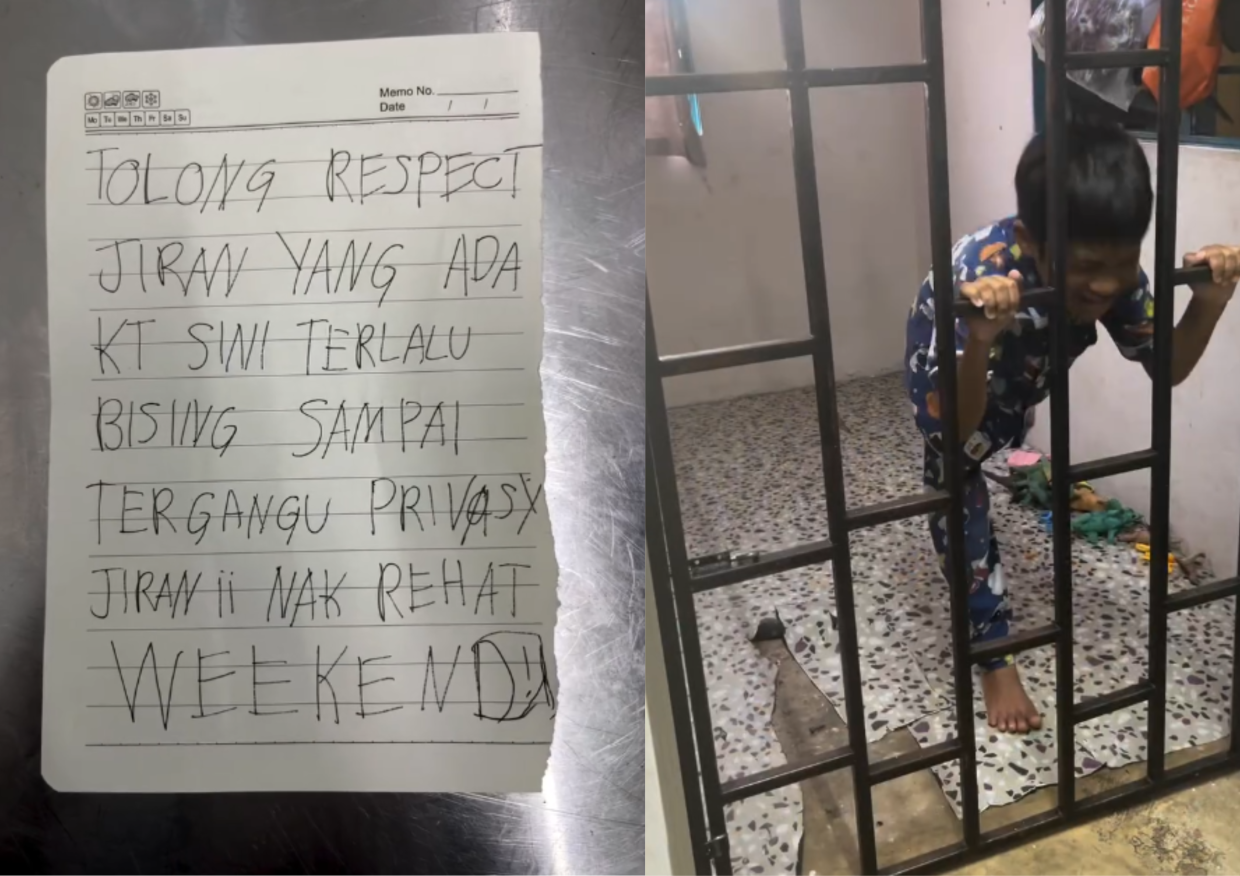 Memo No.
Date / /
Mo Tu We Th Fr Sa Su
TOLONG RESPECT
JIRAN YANG ADA
KT SINI TERLALU
BISING SAMPAI
TERGANGU PRIVASY
JIRAN ii NAK REHAT
WEEKEND!!